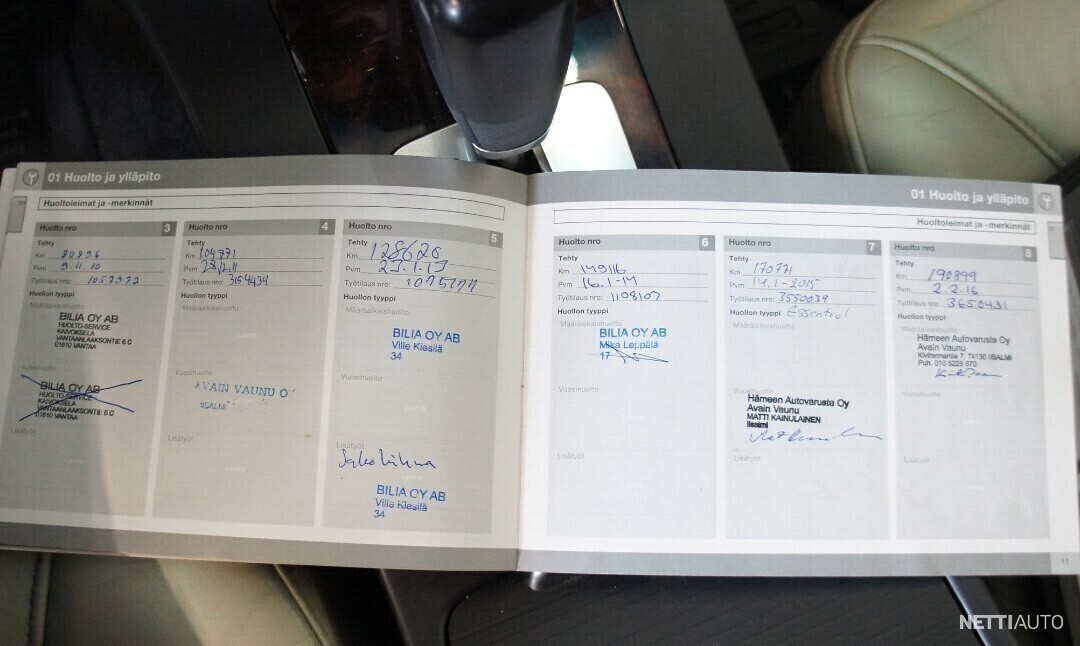 01 Huolto ja ylläpito
Huoltoleimat ja -merkinnät
Huolto nro 3
Tehty
Km 80896
Pvm 9.11.10
Työtilaus nro: 1057972
Huollon tyyppi
Määräaikaishuolto
BILIA OY AB
HUOLTO-SERVICE
KAIVOKSELA
VANTAANLAAKSONTIE 6 C
01610 VANTAA
Vuosihuolto
BILIA OY AB
HUOLTO-SERVICE
KAIVOKSELA
VANTAANLAAKSONTIE 6 C
01610 VANTAA
Lisätyöt
Huolto nro 4
Tehty
Km 104771
Pvm
Työtilaus nro: 3154434
Huollon tyyppi
Määräaikaishuolto
Vuosihuolto
AVAIN VAUNU O
IISALMI
Lisätyöt
Huolto nro 5
Tehty
Km 128620
Pvm 23.1.13
Työtilaus nro: 1075777
Huollon tyyppi
Määräaikaishuolto
BILIA OY AB
Ville Kiesilä
34
Vuosihuolto
Lisätyöt
Jakohihna
BILIA OY AB
Ville Kiesilä
34
01 Huolto ja ylläpito
Huoltoleimat ja -merkinnät
Huolto nro 6
Tehty
Km 149116
Pvm 16.1-14
Työtilaus nro: 1108107
Huollon tyyppi
Määräaikaishuolto
BILIA OY AB
Mika Leppälä
17
Vuosihuolto
Lisätyöt
Huolto nro 7
Tehty
Km 170771
Pvm 14.1-2015
Työtilaus nro: 3550039
Huollon tyyppi Essential
Määräaikaishuolto
Vuosihuolto
Hämeen Autovaruste Oy
Avain Vaunu
MATTI KAINULAINEN
Iisalmi
Lisätyöt
Huolto nro 8
Tehty
Km 190899
Pvm 2.2.16
Työtilaus nro: 3650431
Huollon tyyppi
Määräaikaishuolto
Hämeen Autovaruste Oy
Avain Vaunu
Kivirannantie 7, 74130 IISALMI
Puh. 010 5228 670
Vuosihuolto
Lisätyöt
11
NETTIAUTO